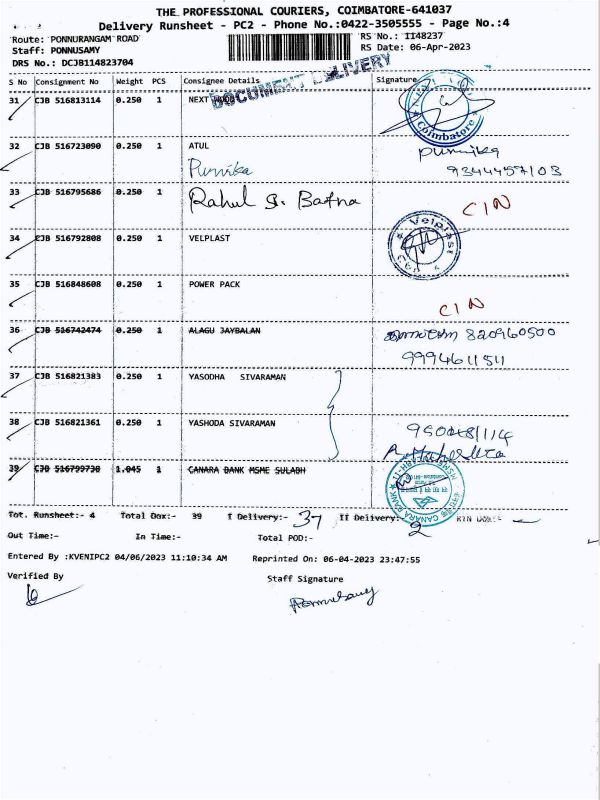 THE PROFESSIONAL COURIERS, COIMBATORE-641037
Delivery Runsheet - PC2 - Phone No.:0422-3505555 - Page No.:4
Route: PONNURANGAM ROAD RS No.: 1148237
Staff: PONNUSAMY RS Date: 06-Apr-2023
DRS No.: DCJB114823704
DOCUMENT DELIVERY
S No Consignment No Weight PCS Consignee Details Signature
31 CJB 516813114 0.250 1 NEXT WOOD
Coimbatore
32 CJB 516723090 0.250 1 ATUL
Purvika Purvika
9344457103
33 CJB 516795686 0.250 1 Rahul G. Bafna CIN
34 CJB 516792808 0.250 1 VELPLAST Velplast
35 CJB 516848608 0.250 1 POWER PACK
CIN
36 CJB 516742474 0.250 1 ALAGU JAYBALAN 820960500
9994611511
37 CJB 516821383 0.250 1 YASODHA SIVARAMAN
38 CJB 516821361 0.250 1 YASHODA SIVARAMAN
39 CJB 516799730 1.045 1 CANARA BANK MSME SULABH
CANARA BANK
Tot. Runsheet:- 4 Total Dox:- 39 I Delivery:- 37 II Delivery:- 2 RTN DOX:-
Out Time:- In Time:- Total POD:-
Entered By :KVENIPC2 04/06/2023 11:10:34 AM Reprinted On: 06-04-2023 23:47:55
Verified By Staff Signature